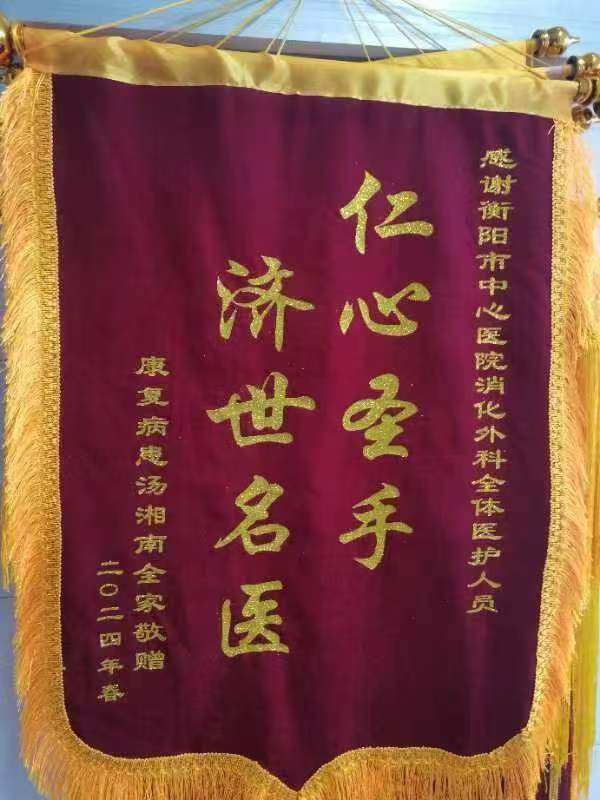 感谢衡阳市中心医院消化外科全体医护人员
仁心圣手
济世名医
康复病患汤湘南全家敬赠
二〇二四年春